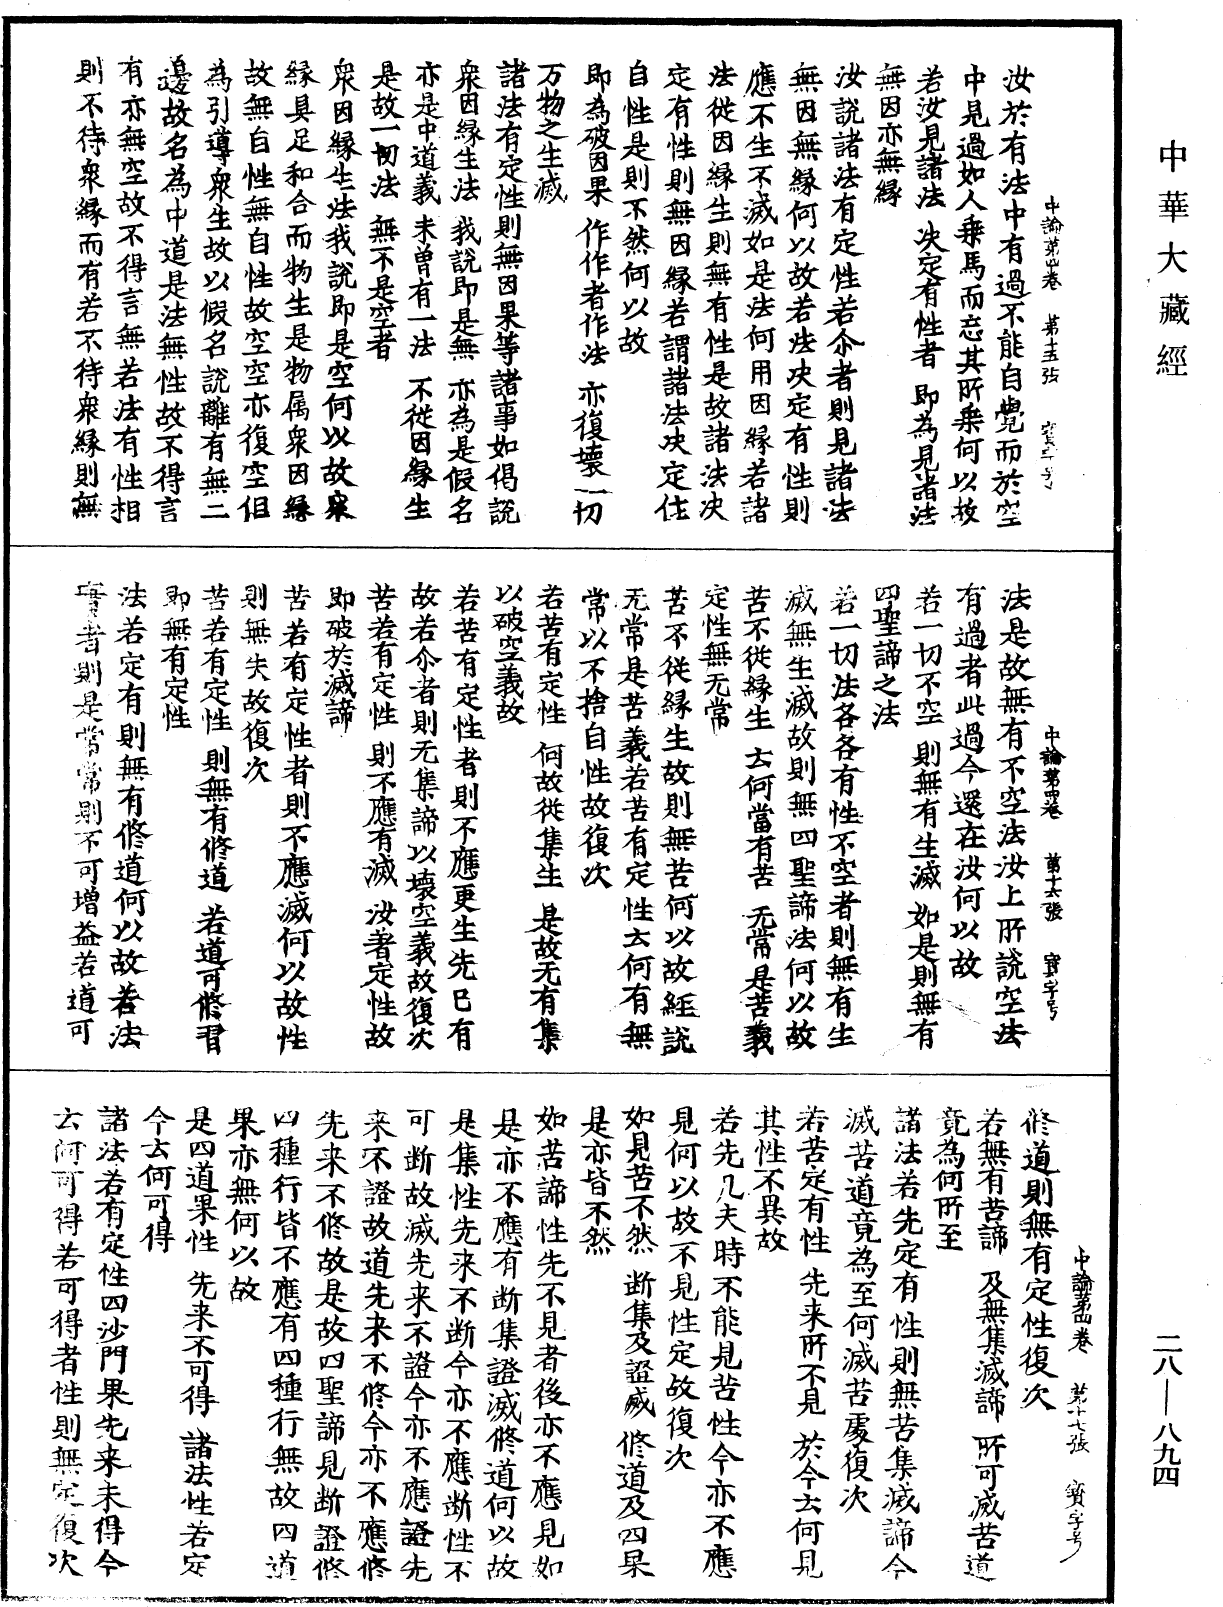 中華大藏經
二八—八九四
中論第四卷　第十五張　寶字号
汝於有法中有過不能自覺而於空
中見過如人乘馬而忘其所乘何以故
若汝見諸法　決定有性者　即為見諸法
無因亦無緣
汝說諸法有定性若尒者則見諸法
無因無緣何以故若法決定有性則
應不生不滅如是法何用因緣若諸
法從因緣生則無有性是故諸法決
定有性則無因緣若謂諸法決定住
自性是則不然何以故
即為破因果　作作者作法　亦復壞一切
万物之生滅
諸法有定性則無因果等諸事如偈說
衆因緣生法　我說即是無　亦為是假名
亦是中道義　未曾有一法　不從因緣生
是故一切法　無不是空者
衆因緣生法我說即是空何以故衆
緣具足和合而物生是物属衆因緣
故無自性無自性故空空亦復空但
為引導衆生故以假名說離有無二
邊故名為中道是法無性故不得言
有亦無空故不得言無若法有性相
則不待衆緣而有若不待衆緣則無
中論第四卷　第十六張　寶字号
法是故無有不空法汝上所說空法
有過者此過今還在汝何以故
若一切不空　則無有生滅　如是則無有
四聖諦之法
若一切法各各有性不空者則無有生
滅無生滅故則無四聖諦法何以故
苦不從緣生　云何當有苦　无常是苦義
定性無无常
苦不從緣生故則無苦何以故經說
无常是苦義若苦有定性云何有無
常以不捨自性故復次
若苦有定性　何故從集生　是故无有集
以破空義故
若苦有定性者則不應更生先已有
故若尒者則无集諦以壞空義故復次
苦若有定性　則不應有滅　汝著定性故
即破於滅諦
苦若有定性者則不應滅何以故性
則無失故復次
苦若有定性　則無有修道　若道可修習
即無有定性
法若定有則無有修道何以故若法
實者則是常常則不可增益若道可
中論第四卷　第十七張　寶字号
修道則無有定性復次
若無有苦諦　及無集滅諦　所可滅苦道
竟為何所至
諸法若先定有性則無苦集滅諦今
滅苦道竟為至何滅苦處復次
若苦定有性　先來所不見　於今云何見
其性不異故
若先凡夫時不能見苦性今亦不應
見何以故不見性定故復次
如見苦不然　断集及證滅　修道及四果
是亦皆不然
如苦諦性先不見者後亦不應見如
是亦不應有断集證滅修道何以故
是集性先來不断今亦不應断性不
可断故滅先來不證今亦不應證先
來不證故道先來不修今亦不應修
先來不修故是故四聖諦見断證修
四種行皆不應有四種行無故四道
果亦無何以故
是四道果性　先来不可得　諸法性若定
今云何可得
諸法若有定性四沙門果先来未得今
云何可得若可得者性則無定復次